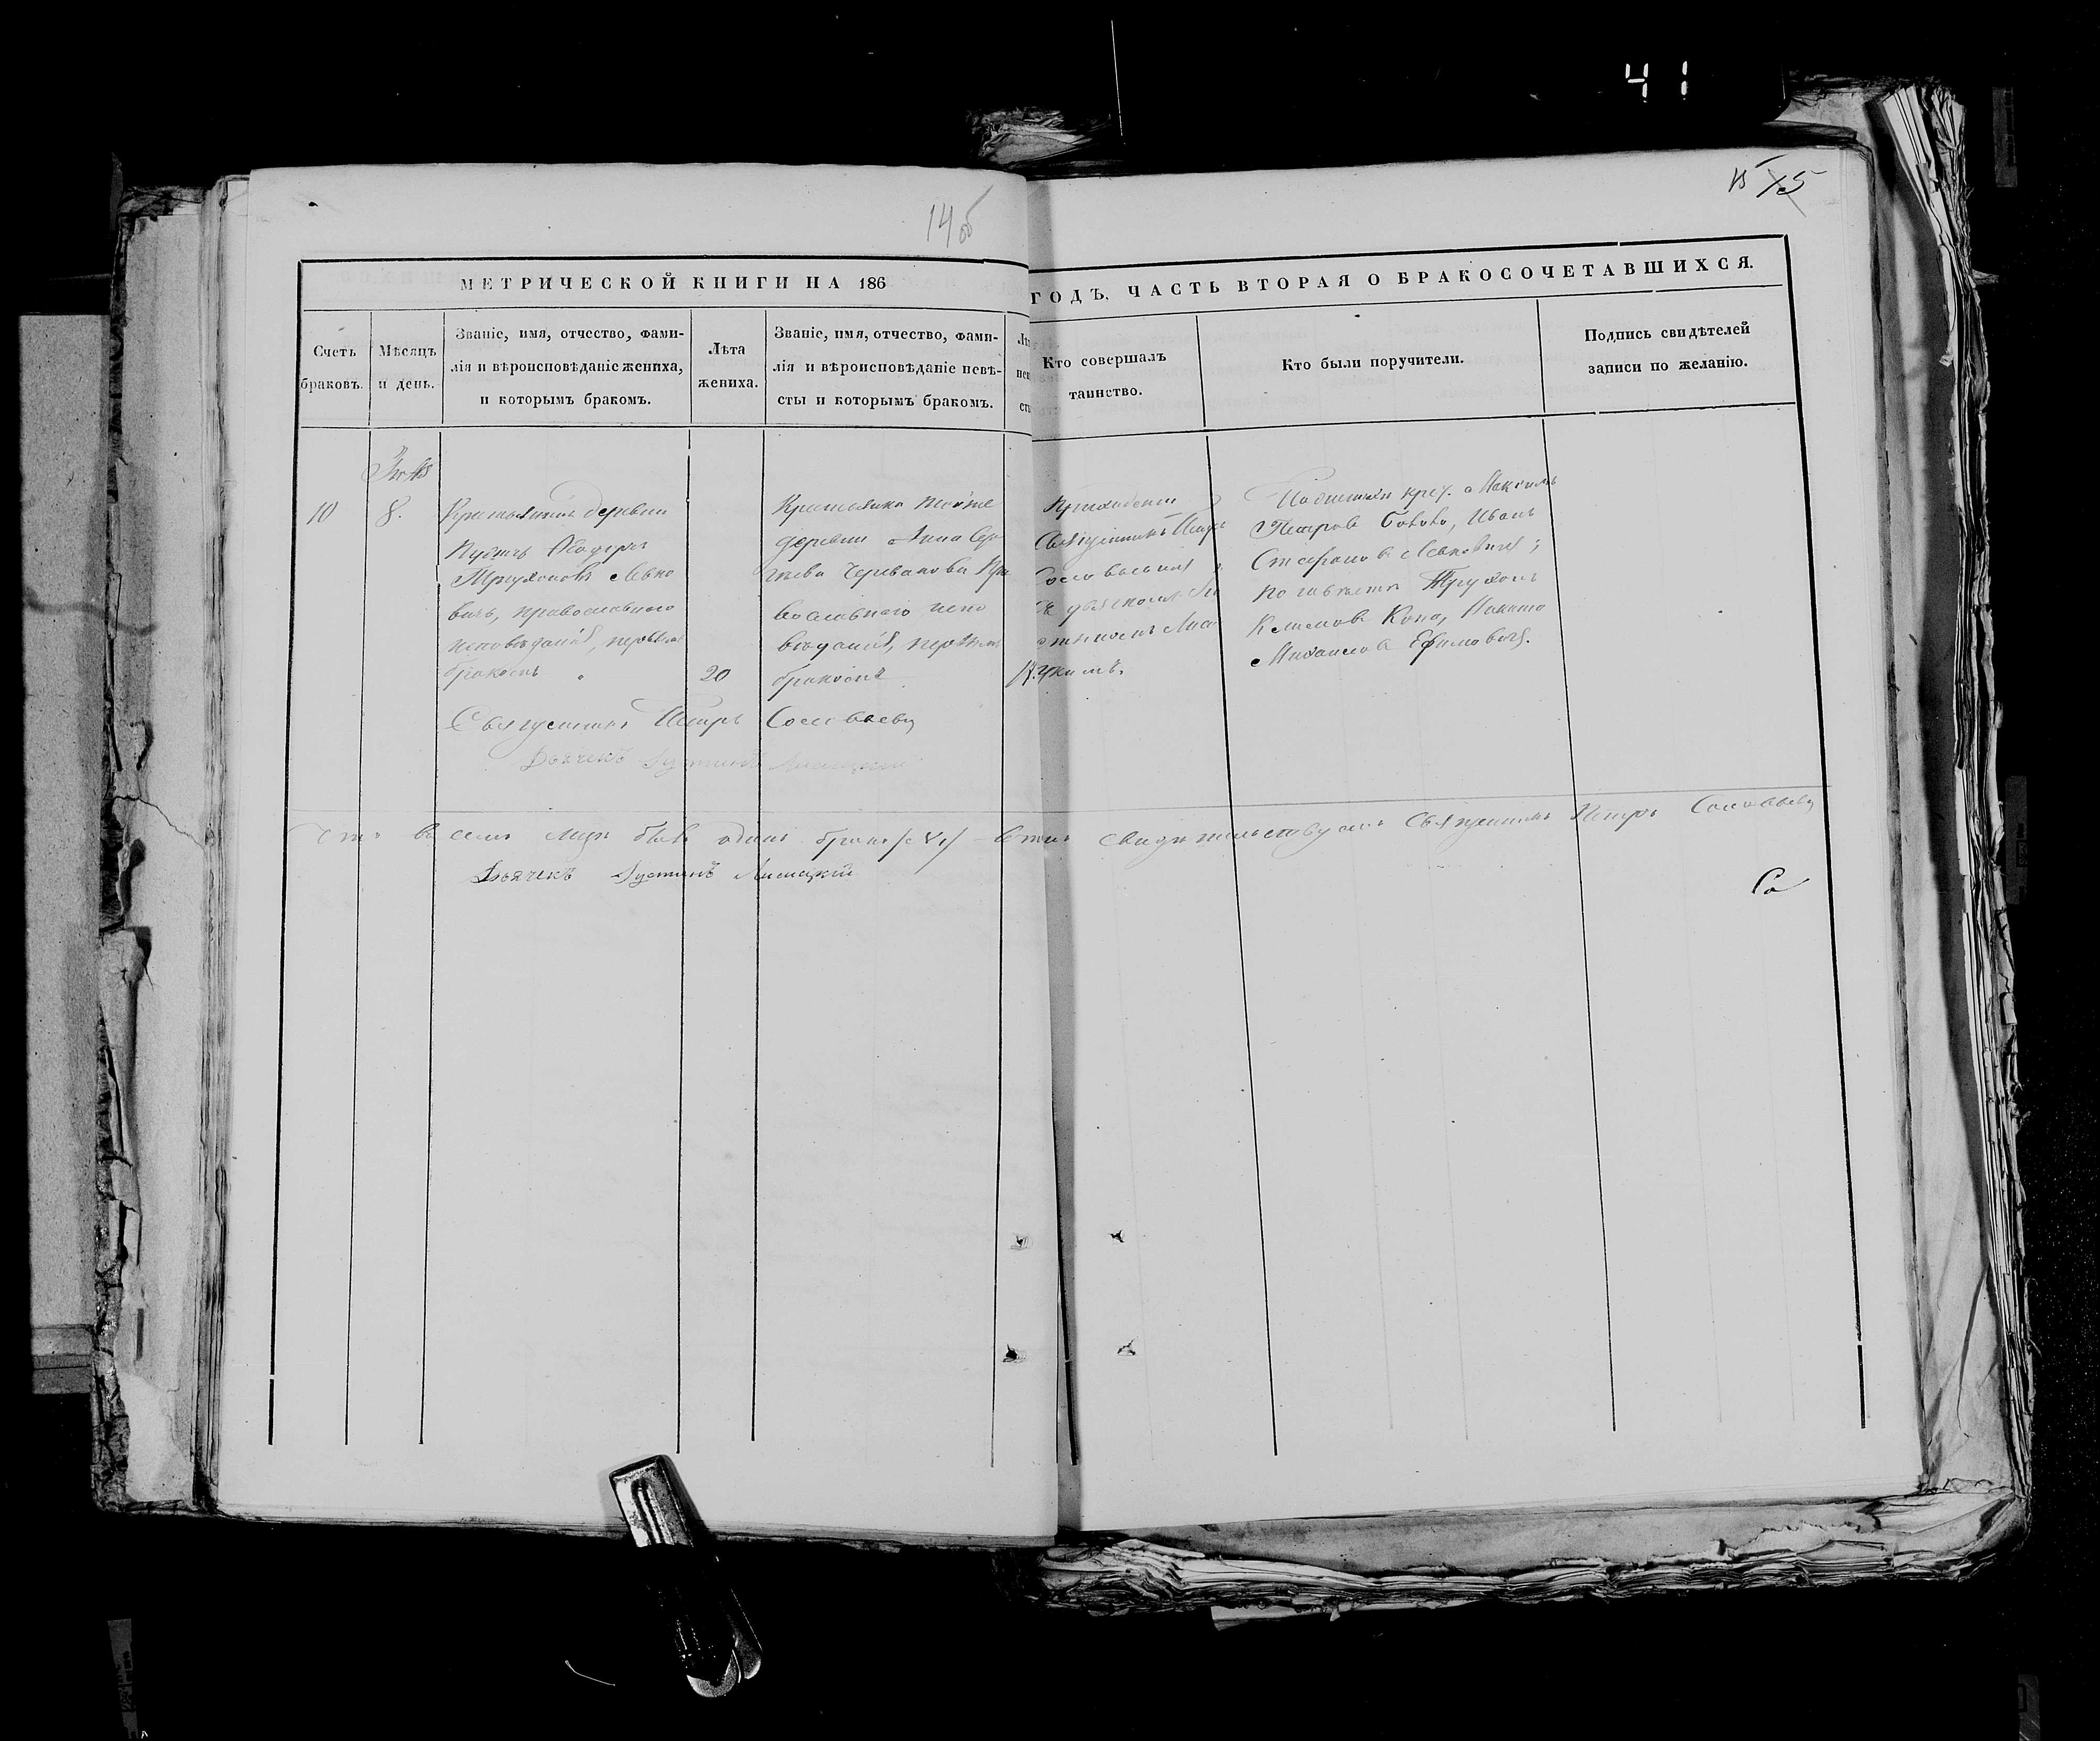 41
14 об
15 15
МЕТРИЧЕСКОЙ КНИГИ НА 186
ГОДЪ, ЧАСТЬ ВТОРАЯ О БРАКОСОЧЕТАВШИХСЯ.
Счетъ
браковъ.
Мѣсяцъ
и день.
Званіе, имя, отчество, фами-
лія и вѣроисповѣданіе жениха,
и которымъ бракомъ.
Лѣта
жениха.
Званіе, имя, отчество, фами-
лія и вѣроисповѣданіе невѣ-
сты и которымъ бракомъ.
Кто совершалъ
таинство.
Кто были поручители.
Подпись свидѣтелей
записи по желанію.
10
8.
Крестьянинъ деревни
Ѳеодоръ
Трухоновъ Левко
вичъ, православнаго
исповѣданія, первымъ
бракомъ
20
Крестьянка тойже
деревни Анна Сер
гѣева
вославнаго испо
вѣданія, первымъ
бракомъ
Приходскій
Священникъ Петръ
Соловьевичъ
съ
кимъ.
По женихѣ крес. Максимъ
Петровъ Иванъ
Стефановъ Левковичъ;
по невѣстѣ Трухонъ
Климовъ Никита
Михаиловъ Ефимовичъ.
Священникъ Петръ
Дьячекъ Іустинъ Лисицкій
Что въ семъ былъ одинъ бракъ въ томъ свидѣтельствуемъ Священникъ Петръ
Дьячекъ Іустинъ Лисицкій
Со